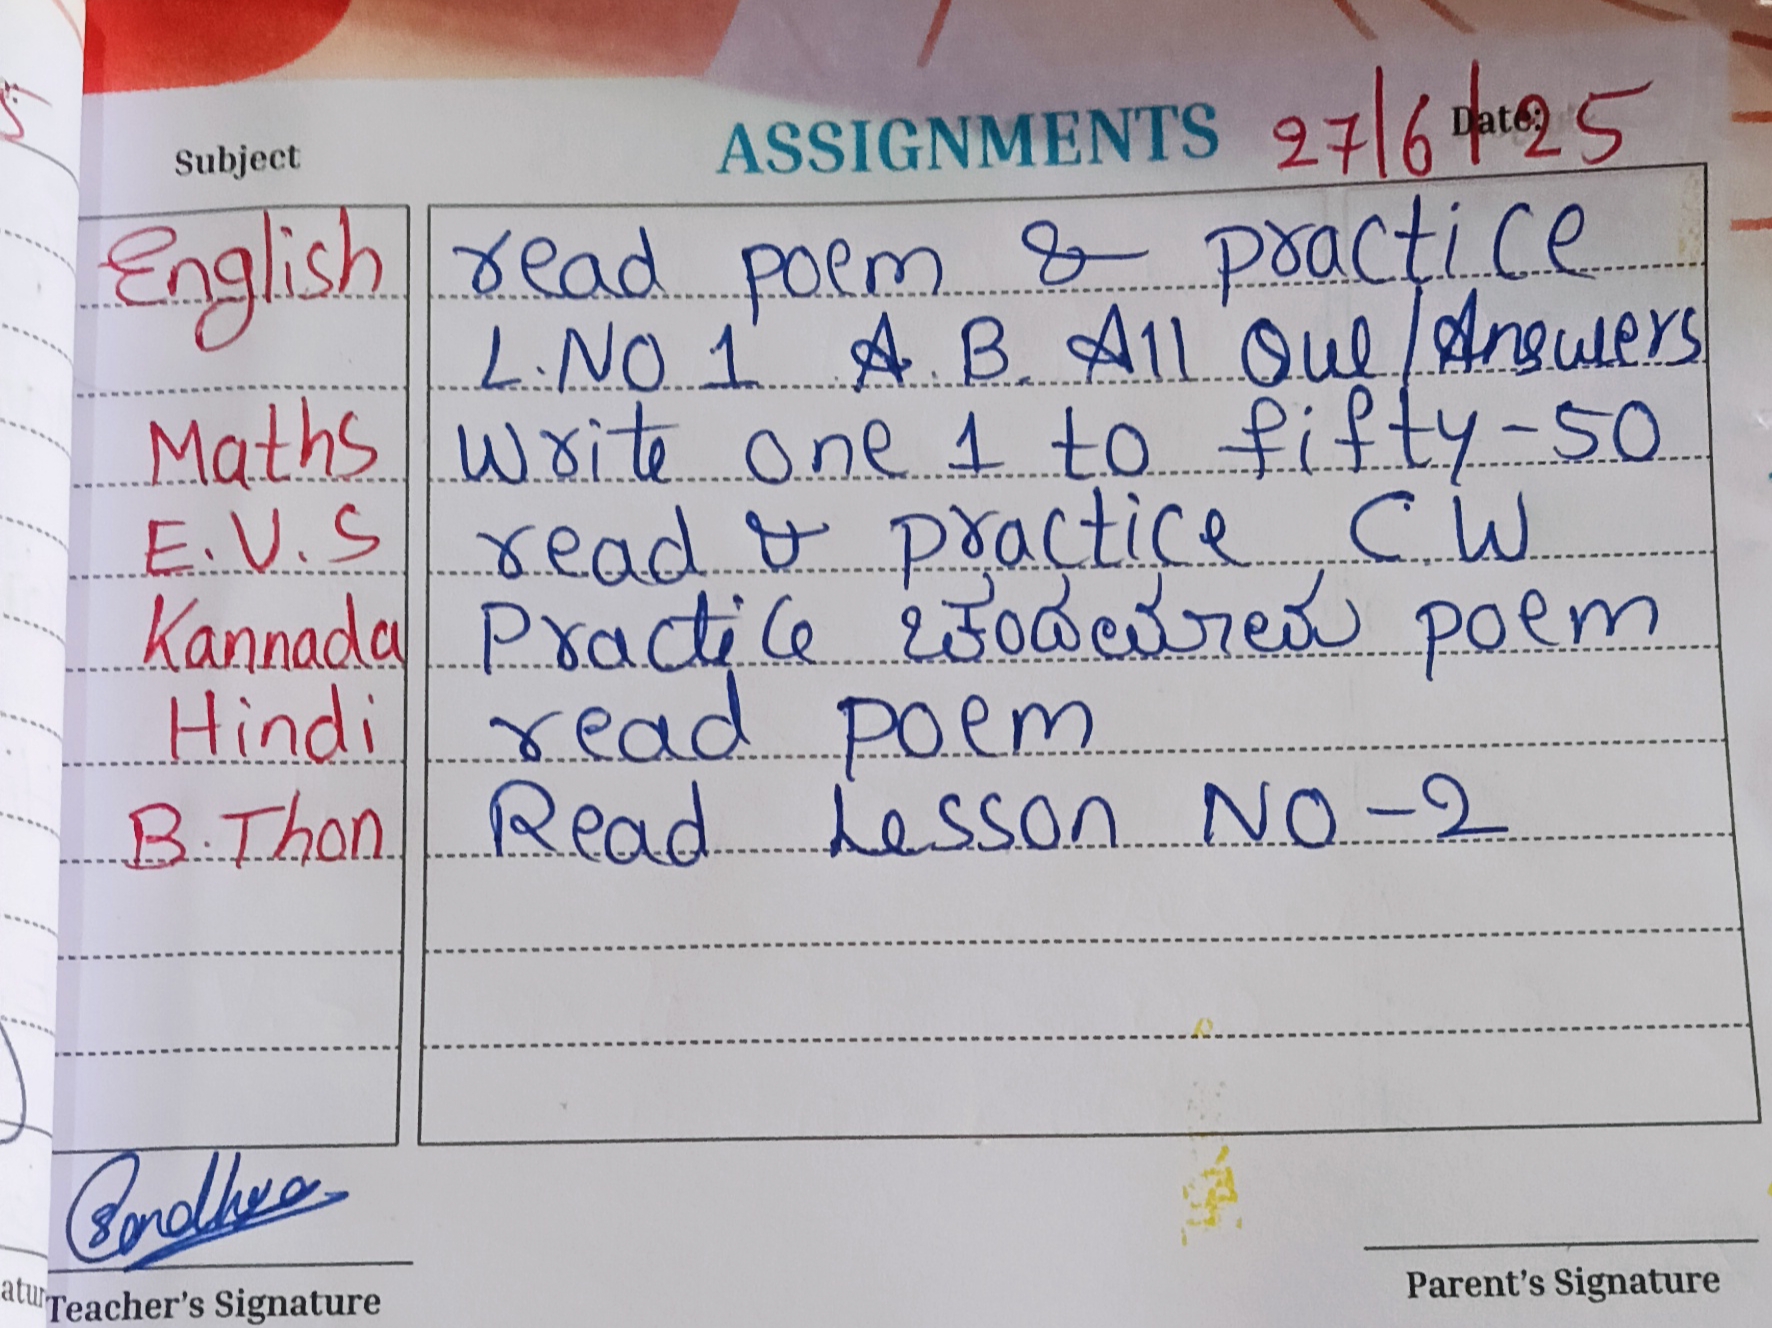 Subject ASSIGNMENTS Date: 27/6/25
English read poem & practice
L.NO 1 A. B. All Que/Answers
Maths Write one 1 to fifty-50
E.V.S read & practice C.W
Kannada Practice poem
Hindi read poem
B.Thon Read Lesson NO-2
Sandhya
Teacher's Signature Parent's Signature